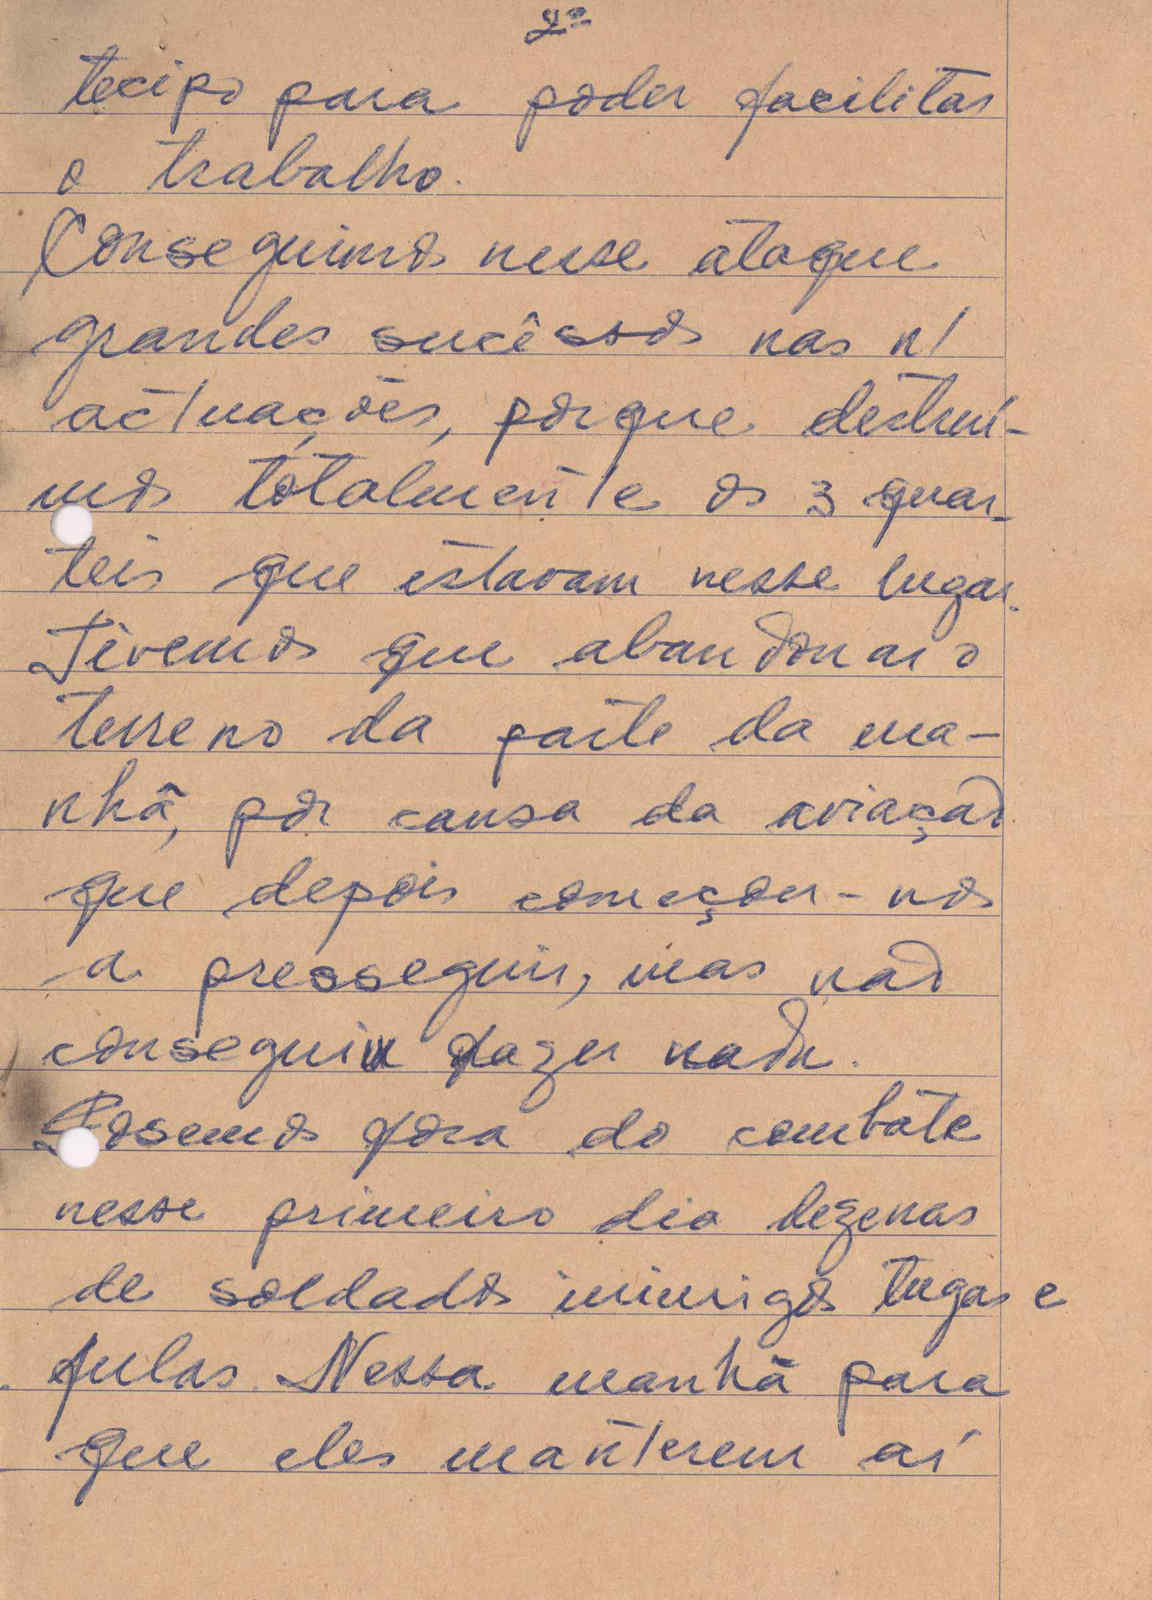 2º
tecipo para poder facilitar
o trabalho.
Conseguimos nesse ataque
grandes sucêssos nas n/
actuações, porque destruí-
mos totalmente os 3 quar-
teis que estavam nesse lugar.
Tivemos que abandonar o
terreno da parte da ma-
nhã, por causa da aviação
que depois começou-nos
a presseguir, mas não
conseguiu fazer nada.
Posemos fora do combate
nesse primeiro dia dezenas
de soldados inimigos tugas e
fulas. Nessa manhã para
que eles manterem aí